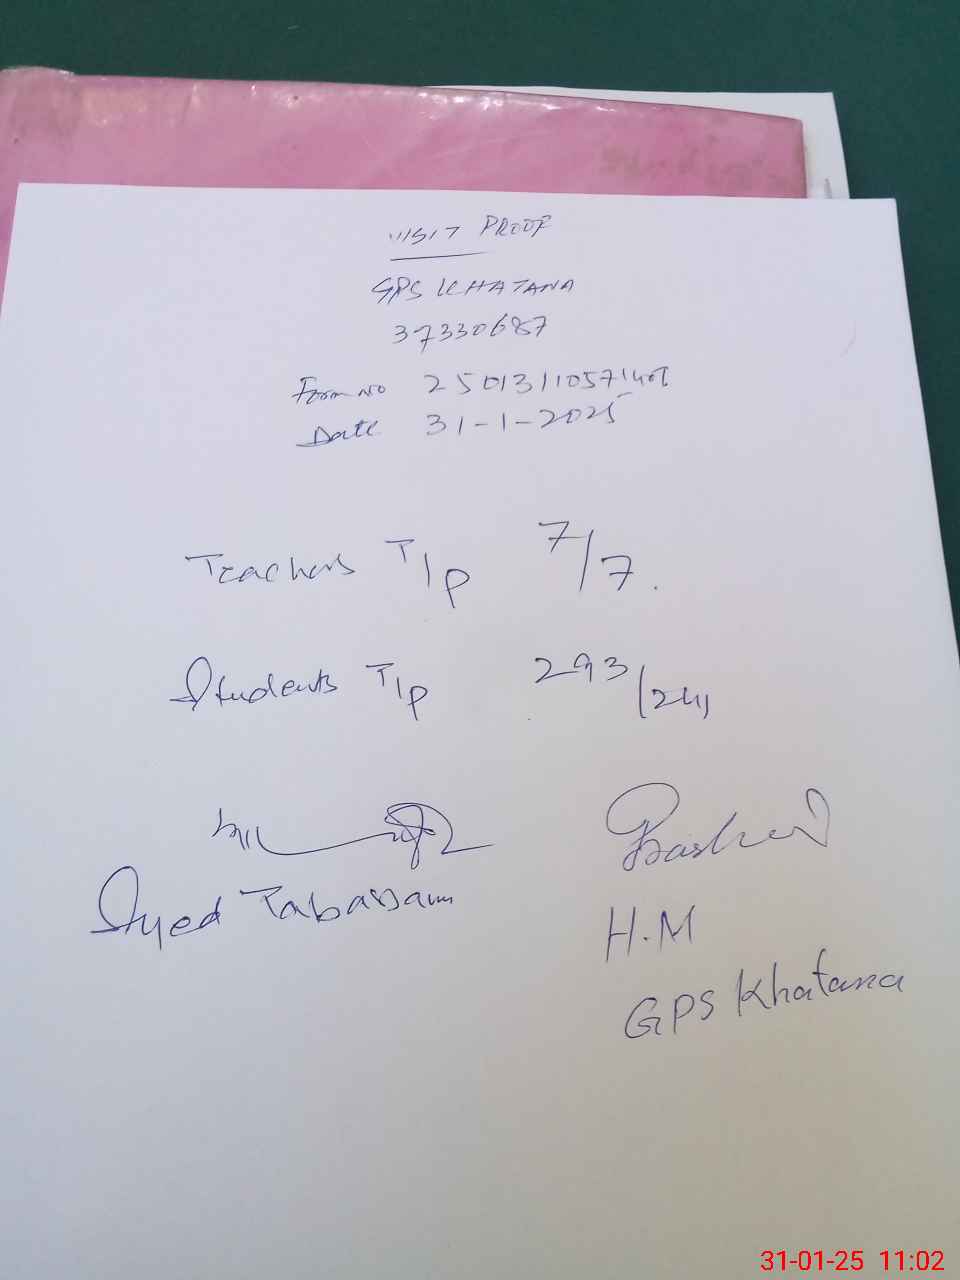 VISIT PROOF
GPS KHATANA
37330687
Form No
Date 31-1-2025
Teachers T/P 7/7.
Students T/P 293/241
Syed Tabassam
Bashir
H.M
GPS Khatana
31-01-25 11:02